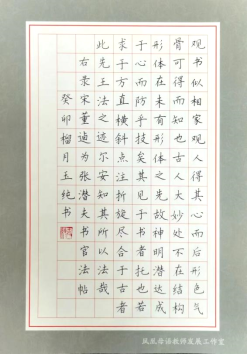 观书似相家观人得其心而后形色气
骨可得而知也古人大妙处不在结构
形体在未有形体之先故神明潜达若成
于心而防乎技矣其见于书者托也至
求于方直横斜点注折旋尽合于古者
此先王之迹尔安知其所以法哉
右录宋董逌为张潜夫书官法帖
癸卯榴月玉纯书
凤凰母语教师发展工作室